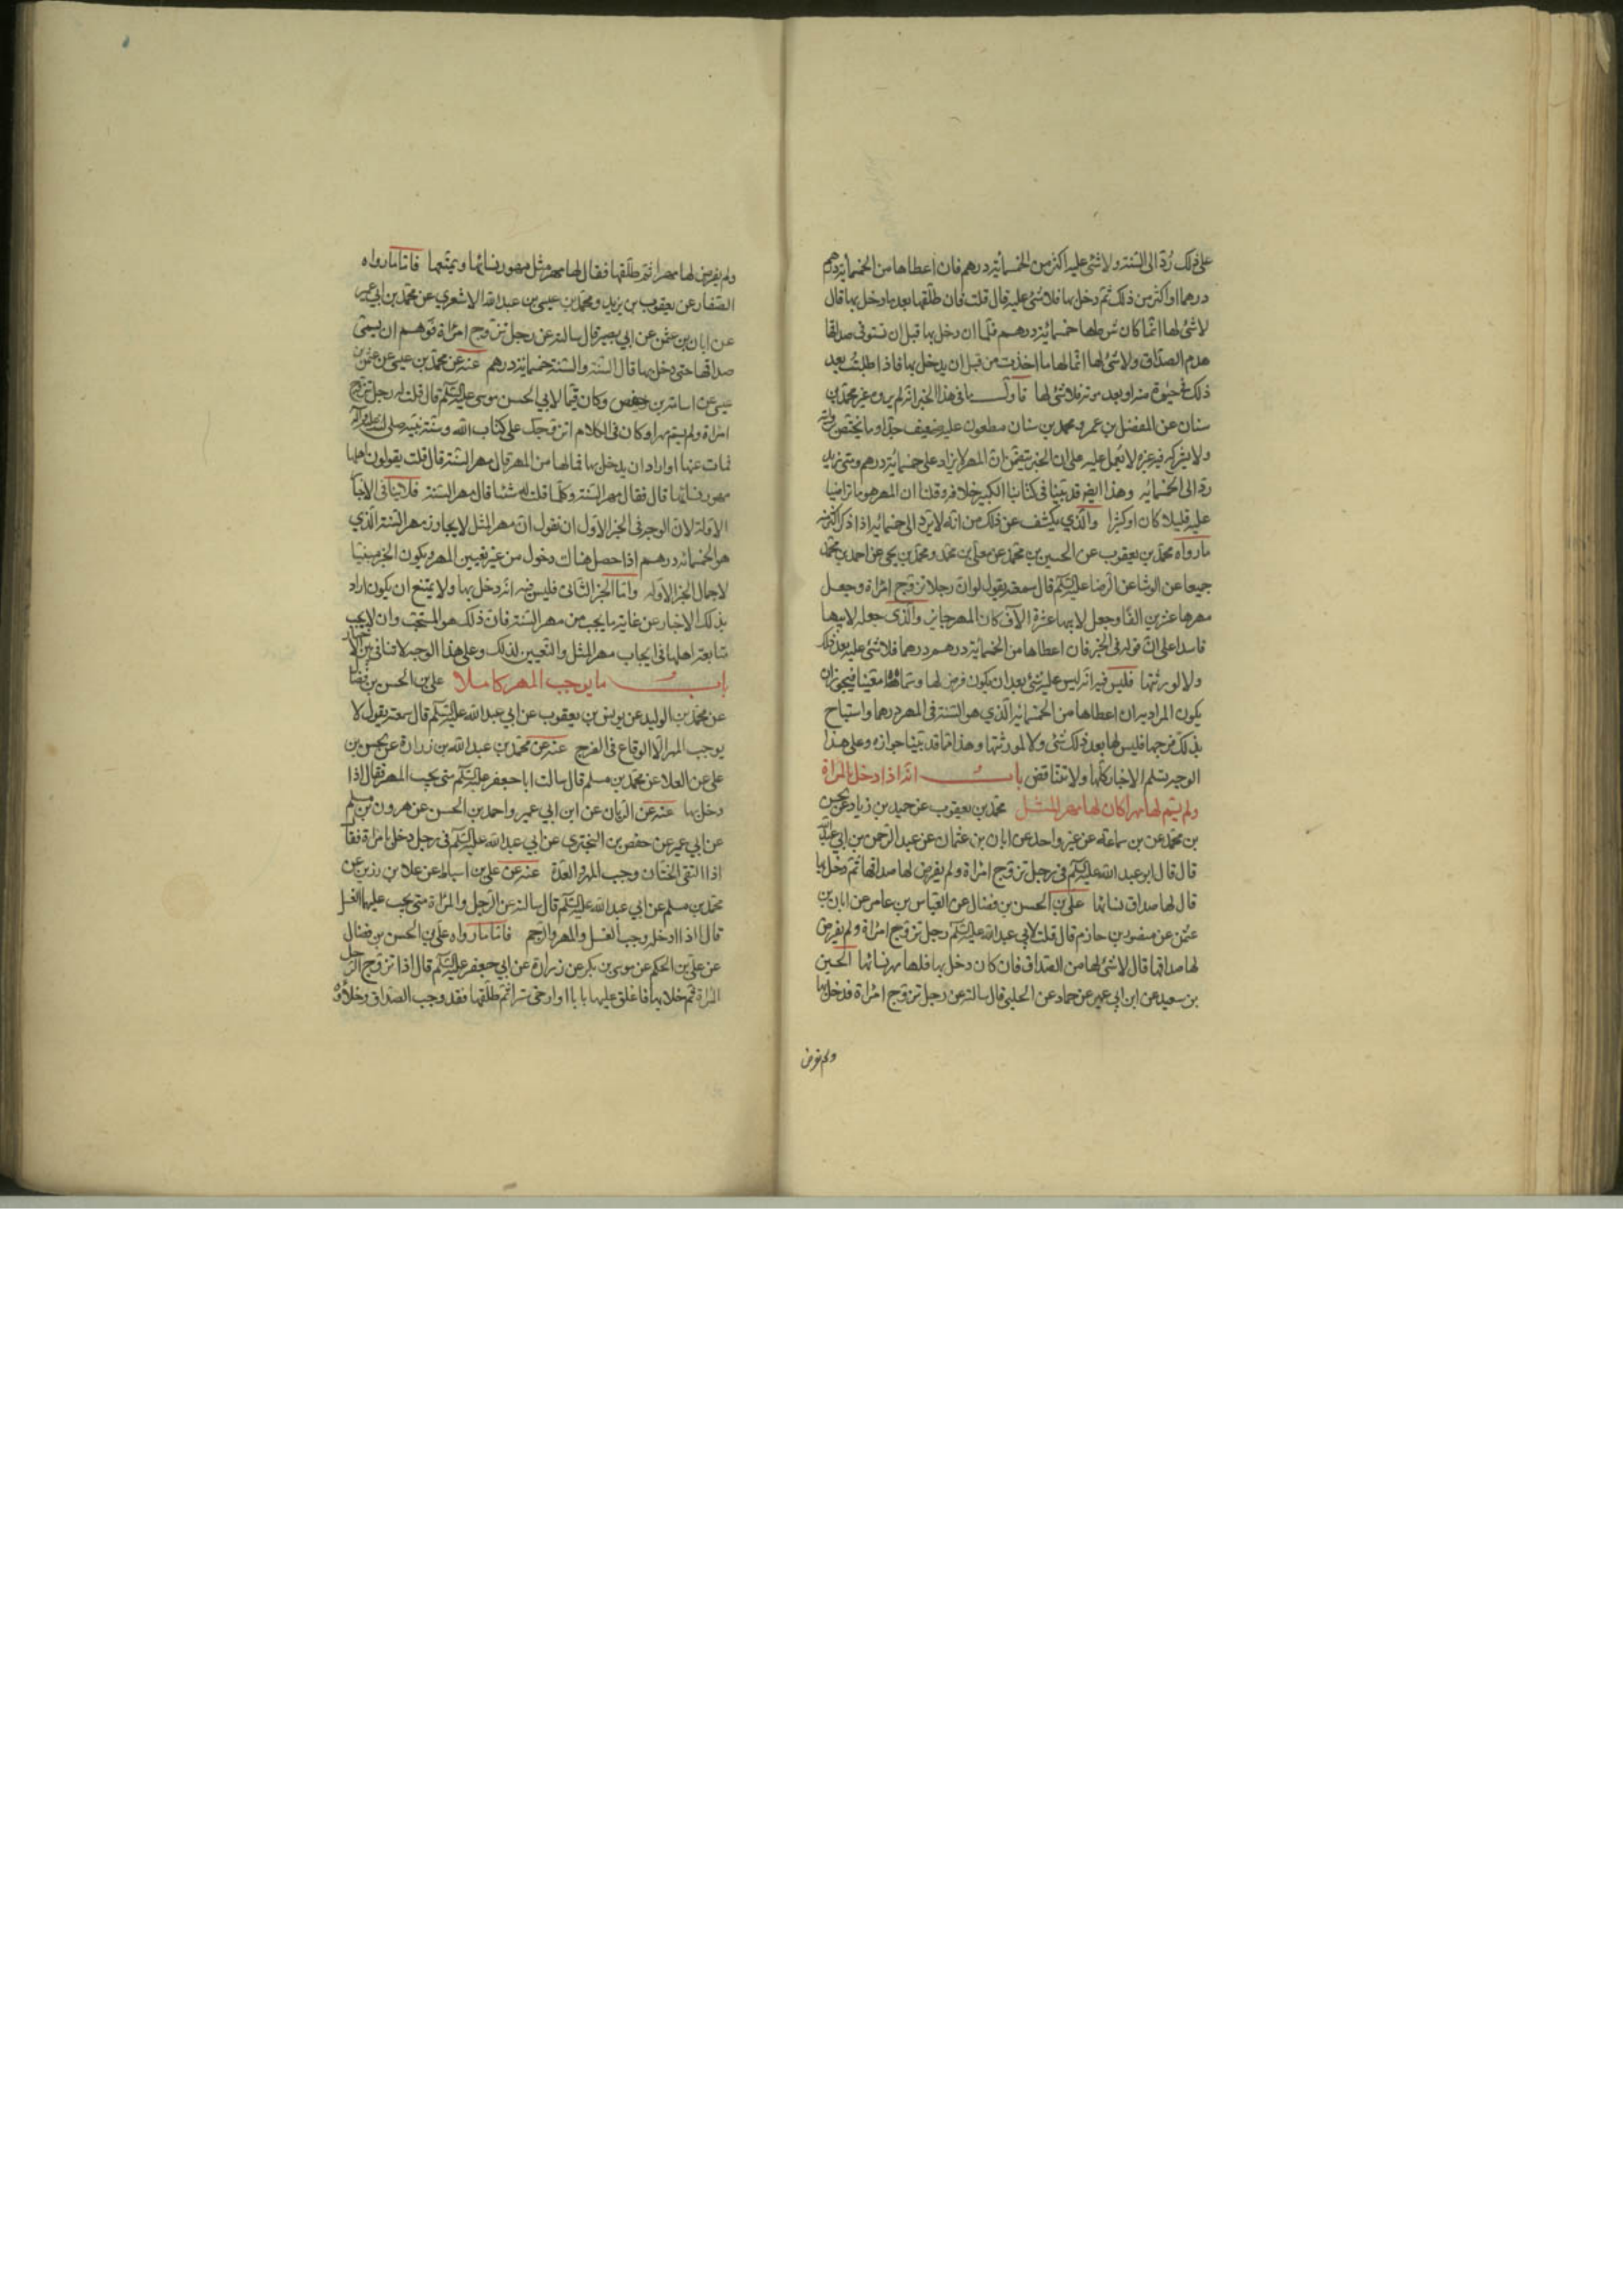 على ذلك رُدّ الى السّنة ولا شئ عليه اكثر من الخمسمائة درهم فان اعطاها من الخمسمائة درهم
درهما او اكثر من ذلك ثم دخل بها فلا شئ عليه قال قلت فان طلّقها بعد ما دخل بها قال
لا شئ لها انّما كان شرطها خمسمائة درهم فلمّا ان دخل بها قبل ان تستوفى صداقها
هدم الصّداق ولا شئ لها انّما لها ما اخذت من قبل ان يدخل بها فاذا طلبت بعد
ذلك فى حيوة منه او بعد موته فلا شئ لها فاوّل ما فى هذا الخبر انه لم يروه غير محمّد بن
سنان عن المفضّل بن عمر و محمد بن سنان مطعون عليه ضعيف جدّا وما يختص بروايته
ولا يشركه فيه غيره لا يعمل عليه على ان الخبر يتضمّن انّ المهر لا يزاد على خمسمائة درهم ومتى زيد
ردّ الى الخمسمائه وهذا ايضا قد بيّنا فى كتابنا الكبير خلافه وقلنا ان المهر هو ما تراضيا
عليه قليلا كان او كثيرا والّذي يكشف عن ذلك من انّه لا يردّ الى خمسمائه اذا ذكر اكثر منه
ما رواه محمّد بن يعقوب عن الحسين بن محمّد عن معلّى بن محمّد و محمّد بن يحيى عن احمد بن محمّد
جميعا عن الوشا عن الرّضا عليه السّلم قال سمعته يقول لو انّ رجلا تزوّج امرأة وجعل
مهرها عشرين الفًا وجعل لابيها عشرة الآف كان المهر جايز والّذى جعله لابيها
فاسدا على انّ قوله فى الخبر فان اعطاها من الخمسمائة درهم درهما فلا شئ عليه بعد ذلك
ولا لورثتها فليس فيه انّه ليس عليه شئ بعد ان يكون فرض لها وسمّاها معيّنا فيجوز ان
يكون المراد به ان اعطاها من الخمسمائة الّذي هو السّنة فى المهر درهما واستباح
بذلك فرجها فليس لها بعد ذلك شئ ولا لورثتها وهذا ممّا قد بيّنا جوازه وعلى هذا
الوجه تسلم الاخبار كلّها ولا تتناقض باب انّه اذا دخل بالمرأة
ولم يسمّ لها مهرا كان لها مهر المثل محمّد بن يعقوب عن حميد بن زياد عن الحسن
بن محمّد عن بن سماعة عن غير واحد عن ابان بن عثمان عن عبد الرّحمن بن ابي عبد الله
قال قال ابو عبد الله عليه السّلم فى رجل تزوّج امرأة ولم يفرض لها صداقها ثم دخل بها
قال لها صداق نسائها على بن الحسن بن فضّال عن العبّاس بن عامر عن ابان بن
عثمن عن منصور بن حازم قال قلت لابي عبد الله عليه السّلم رجل تزوّج امرأة ولم يفرض
لها صداقها قال لا شئ لها من الصّداق فان كان دخل بها فلها مهر نسائها الحسين
بن سعيد عن ابن ابي عمير عن حماد عن الحلبي قال سالته عن رجل تزوّج امرأة فدخل بها
ولم يفرض
ولم يفرض لها مهرا ثم طلّقها فقال لها مهر مثل مهور نسائها ويمتّعها فامّا ما رواه
الصّفار عن يعقوب بن يزيد و محمّد بن عيسى بن عبد الله الاشعري عن محمّد بن ابي عمير
عن ابان بن عثمن عن ابي بصير قال سالته عن رجل تزوج امرأة فوهم ان يسمّى
صداقها حتى دخل بها قال السّنة والسّنة خمسمائة درهم عنه عن محمّد بن عيسى عن عثمن بن
عيسى عن اسامة بن حفص وكان قيّما لابي الحسن موسى عليه السّلم قال قلت له رجل تزوّج
امرأة ولم يسمّ مهرا وكان فى الكلام اتزوّجك على كتاب الله وسنّة نبيّه صلى الله عليه وآله
فمات عنها او اراد ان يدخل بها فما لها من المهر قال مهر السّنة قال قلت يقولون اهلها
مهور نسائها قال فقال مهر السّنة وكلّما قلت له شئا قال مهر السّنة فلا ينافى الاخبار
الاوّلة لانّ الوجه فى الخبر الاوّل ان نقول انّ مهر المثل لا يجاوز مهر السّنة الّذي
هو الخمسمائة درهم اذا حصل هناك دخول من غير تعيين المهر ويكون الخبر مبيّنا
لاجمال الخبر الاوّل وامّا الخبر الثّانى فليس فيه انّه دخل بها ولا يمتنع ان يكون اراد
بذلك الاخبار عن غاية ما يجب من مهر السّنة فان ذلك هو المستحب وان لا يجب
متابعة اهلها فى ايجاب مهر المثل والتعيين لذلك وعلى هذا الوجه لا تنافى بين الاخبار
باب ما يوجب المهر كاملا على بن الحسن بن فضّال
عن محمّد بن الوليد عن يونس بن يعقوب عن ابي عبد الله عليه السّلم قال سمعته يقول لا
يوجب المهر الّا الوقاع فى الفرج عنه عن محمّد بن عبد الله بن زرارة عن الحسن بن
على عن العلا عن محمّد بن مسلم قال سالت ابا جعفر عليه السّلم متى يجب المهر فقال اذا
دخل بها عنه عن الزّيان عن ابن ابي عمير واحمد بن الحسن عن هرون بن مسلم
عن ابي عمير عن حفص بن البختري عن ابي عبد الله عليه السّلم فى رجل دخل بامرأة فقال
اذا التقى الختان وجب المهر والعدّة عنه عن على بن اسباط عن علا بن رزين عن
محمّد بن مسلم عن ابي عبد الله عليه السّلم قال سالته عن الرّجل والمرأة متى يجب عليهما الغسل
قال اذا ادخله وجب الغسل والمهر والرّجم فامّا ما رواه على بن الحسن بن فضال
عن على بن الحكم عن موسى بن بكر عن زرارة عن ابي جعفر عليه السّلم قال اذا تزوّج الرّجل
المرأة ثم خلا بها فاغلق عليها بابا او ارخى سترا ثم طلّقها فقد وجب الصّداق وخلاؤه